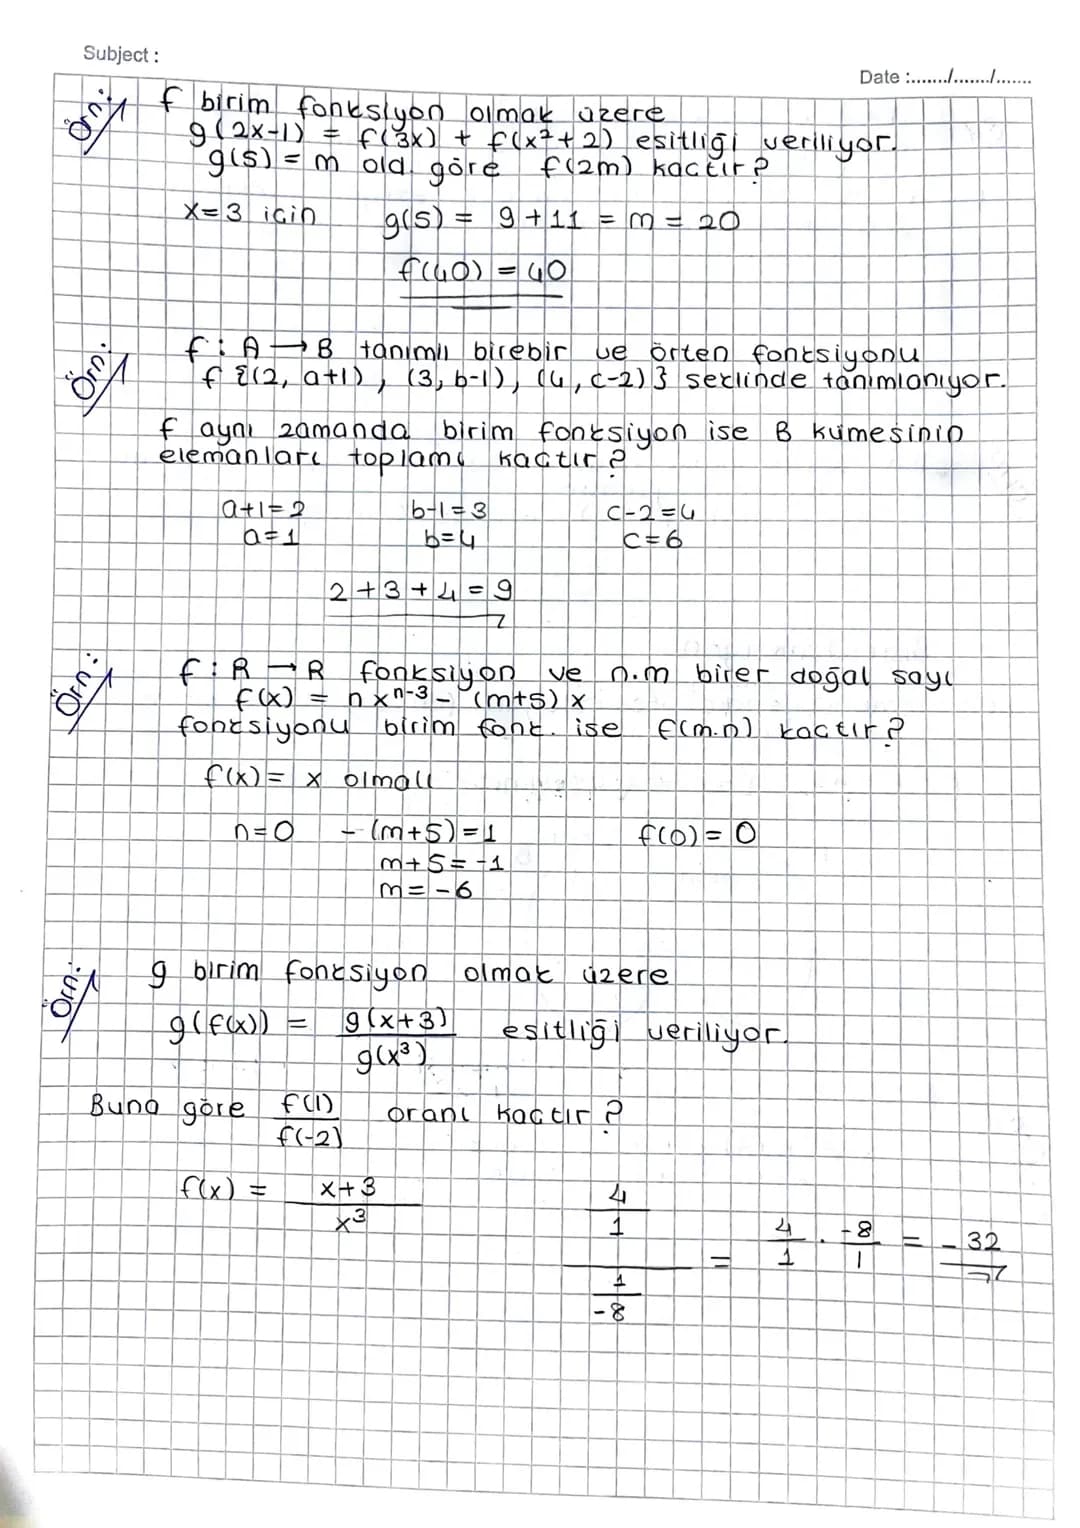 Subject :
Date :......./......./.......
Örn: f birim fonksiyon olmak üzere
g(2x-1) = f(3x) + f(x²+2) eşitliği veriliyor.
g(5) = m old. göre f(2m) kaçtır?
x=3 için g(5) = 9+11 = m = 20
f(40) = 40
Örn: f : A → B tanımlı birebir ve örten fonksiyonu
f {(2, a+1), (3, b-1), (4, c-2)} şeklinde tanımlanıyor.
f aynı zamanda birim fonksiyon ise B kümesinin
elemanları toplamı kaçtır?
a+1=2 b-1=3 c-2=4
a=1 b=4 c=6
2+3+4=9
Örn: f : R → R fonksiyon ve n.m birer doğal sayı
f(x) = n xⁿ⁻³ - (m+5) x
fonksiyonu birim fonk. ise f(m.n) kaçtır?
f(x) = x olmalı
n=0 -(m+5)=1 f(0) = 0
m+5=-1
m=-6
Örn: g birim fonksiyon olmak üzere
g(f(x)) = g(x+3) / g(x³) eşitliği veriliyor.
Buna göre f(1) / f(-2) oranı kaçtır?
f(x) = x+3 / x³
4/1 / 1/-8 = 4/1 . -8/1 = -32